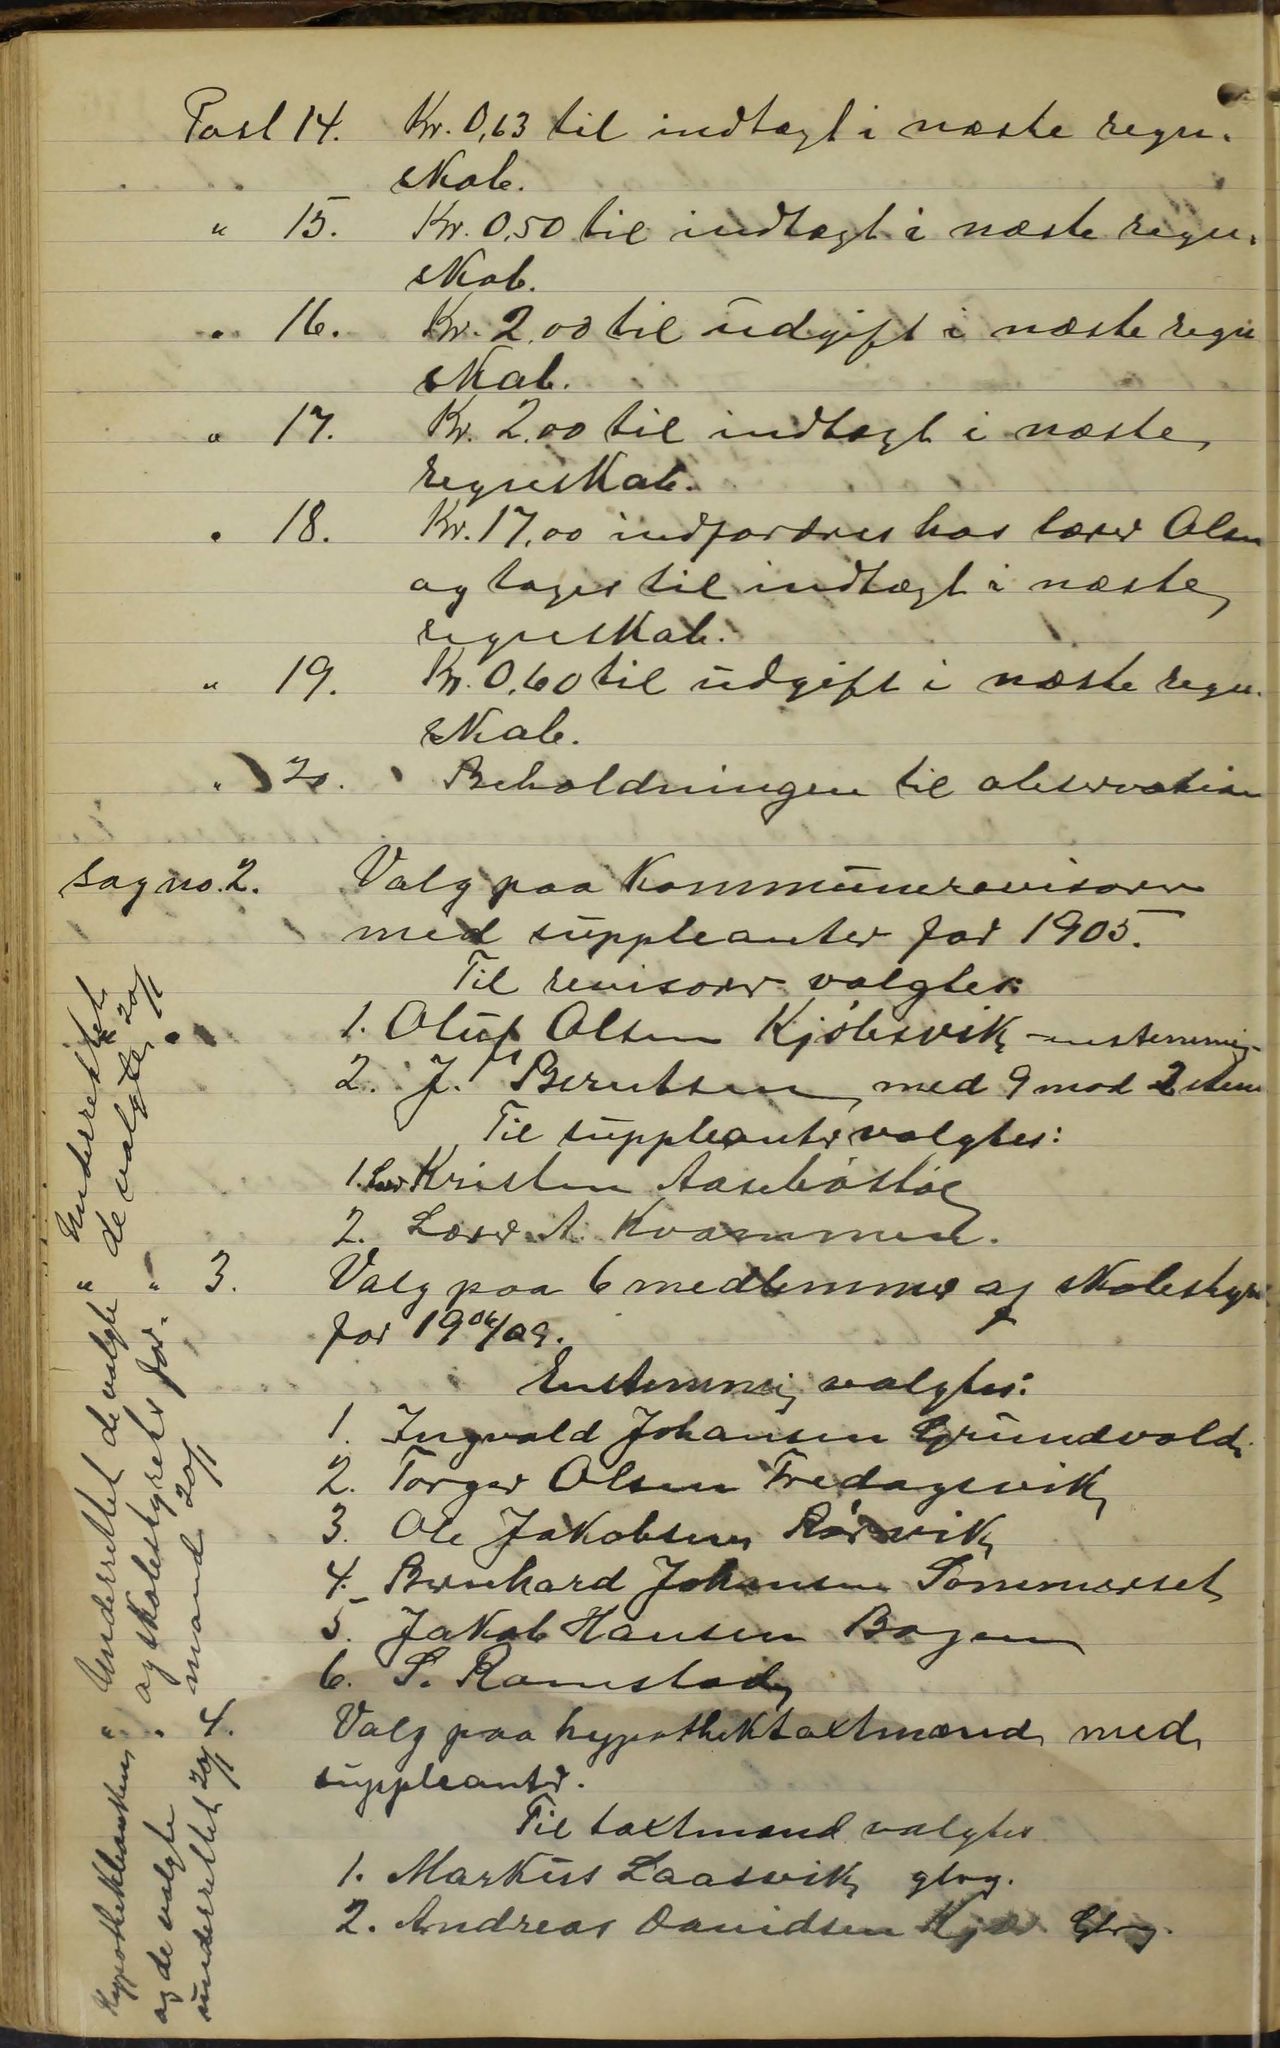 Post 14. Kr. 0,63 til indtægt i næste regn-
skab.
" 15. Kr. 0,50 til indtægt i næste regn-
skab.
" 16. Kr. 2,00 til udgift i næste regn
skab.
" 17. Kr. 2,00 til indtægt i næste
regnskab.
" 18. Kr. 17,00 indfordres hos lærer Olsen
og tages til indtægt i næste
regnskab.
" 19. Kr. 0,60 til udgift i næste regn-
skab.
" 20. Beholdningen til observation
Sag no. 2. Valg paa kommunerevisorer
med suppleanter for 1905.
Til revisorer valgtes:
1. Oluf Olsen Kjöbsvik enstemmig
2. J. Berntsen med 9 mod 2 stem
Til suppleanter valgtes:
1. Kristen Aasebøstøl
2. Lærer A. Kvammen.
" 3. Valg paa 6 medlemmer af skolestyre
for 1906/09.
Enstemmig valgtes:
1. Ingvald Johansen Grundvold
2. Torger Olsen Fredagsvik
3. Ole Jakobsen Rørvik
4. Bernhard Johansen Sommerset
5. Jakob Hansen Bogen
6. S. Ramstad
" 4. Valg paa hypothektaxtmænd med
suppleanter.
Til taxtmænd valgtes
1. Markus Laasvik gbrg.
2. Andreas Danidsen Kjær Gbrg.
Underrettet
de valgte 20/11
Underrettet de valgte
og skolestyrets for-
mand 20/11
Hypothekbanken
og de valgte
underrettet 20/11